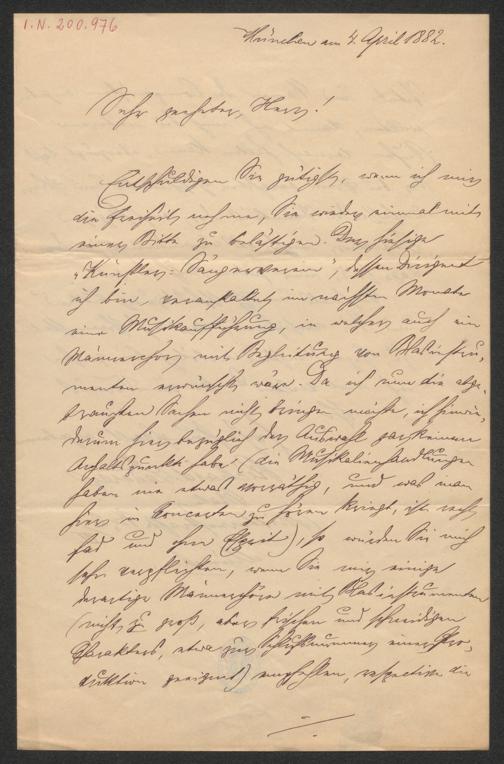 I.N. 200.976
München am 4. April 1882.
Sehr geehrter Herr!
Entschuldigen Sie gütigst, wenn ich mir
die Freiheit nehme, Sie wieder einmal mit
einer Bitte zu belästigen. Der hiesige
„Künstler-Sängerverein", dessen Dirigent
ich bin, veranstaltet im nächsten Monate
eine Musikaufführung, in welcher auch ein
Männerchor mit Begleitung von Blasinstru-
menten erwünscht wäre. Da ich nun die abge-
braugten Sachen nicht bringen möchte, ich hinwie-
derum hier bezüglich der Auswahl gar keinen
Anhaltspunkt habe (die Musikalienhandlungen
haben nie etwas vorräthig, und was man
hier in Concerten zu hören kriegt, ist recht
fad und ohne Esprit), so würden Sie mich
sehr verpflichten, wenn Sie mir einige
derartige Männerchöre mit Blasinstrumenten
(nicht zu groß, aber frischen und schneidigen
Charakters, etwa zur Schlußnummer einer Pro-
duktion geeignet) empfehlen, respective die